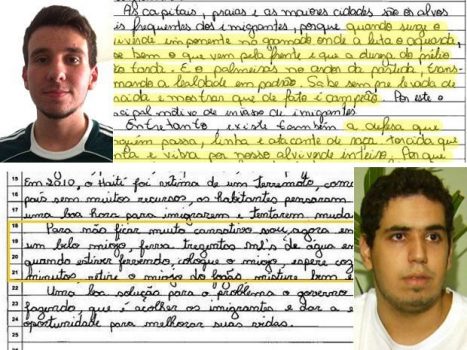 As capitais, praias e as maiores cidades são os alvos
is frequentes dos imigrantes, porque quando surge o
viverde imponente no gramado onde a luta o aguarda,
be bem o que vem pela frente e que a dureza do prélio
tarda. E o palmeiras no ardor da partida, trans-
mando a lealdade em padrão. Sabe sempre levar de
ncida e mostrar que de fato é campeão. Por este o
cipal motivo de invasão de imigrantes.
Entretanto existe também a defesa que
guém passa, linha e atacante de raça, torcida que
nta e vibra por nosso alviverde inteiro. Por que
15 Em 2010, o Haiti foi vítima de um terremoto, como
16 país sem muitos recursos, os habitantes pensaram
17 uma boa hora para imigrarem e tentarem muda
18 Para não ficar muito cansativo vou agora en
19 um belo miojo, ferva trezentos ml's de água em
20 quando estiver fervendo, coloque o miojo, espere
21 minutos retire o miojo do fogão, misture bem
22 Uma boa solução para o problema o governo
23 fazendo, que é acolher os imigrantes e dar a e
24 oportunidade para melhorar suas vidas.